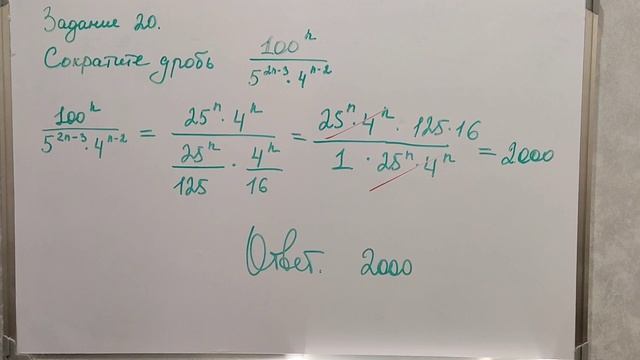 Задание 20.
Сократите дробь 100^n / (5^(2n-3) · 4^(n-2))
100^n / (5^(2n-3) · 4^(n-2)) = (25^n · 4^n) / (25^n/125 · 4^n/16) = (25^n · 4^n · 125 · 16) / (1 · 25^n · 4^n) = 2000
Ответ. 2000